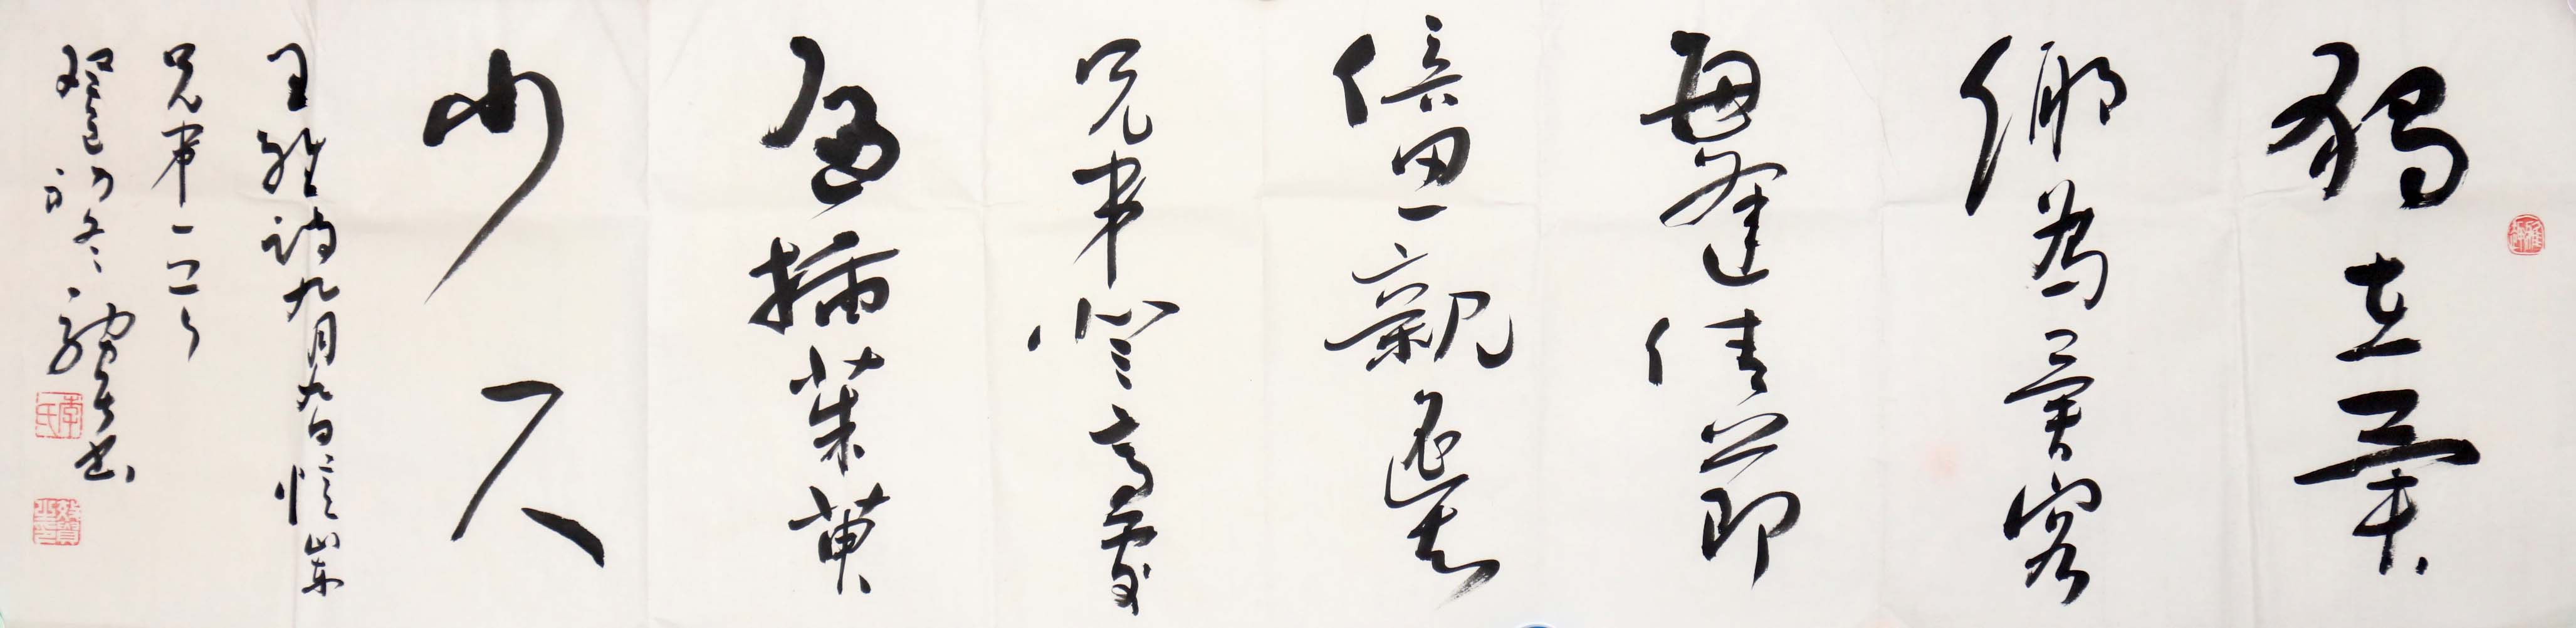 獨在異
鄉為異客
每逢佳節
倍思親遙知
兄弟登高處
遍插茱萸
少一人
王維詩九月九日憶山東
兄弟一首
癸巳初冬書
李氏